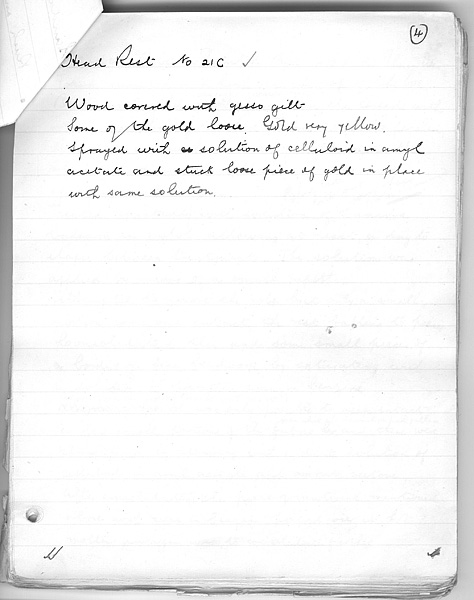 4
Head Rest No 21C ✓
Wood covered with gesso gilt
Some of the gold loose. Gold very yellow.
Sprayed with solution of celluloid in amyl
acetate and stuck loose piece of gold in place
with same solution.